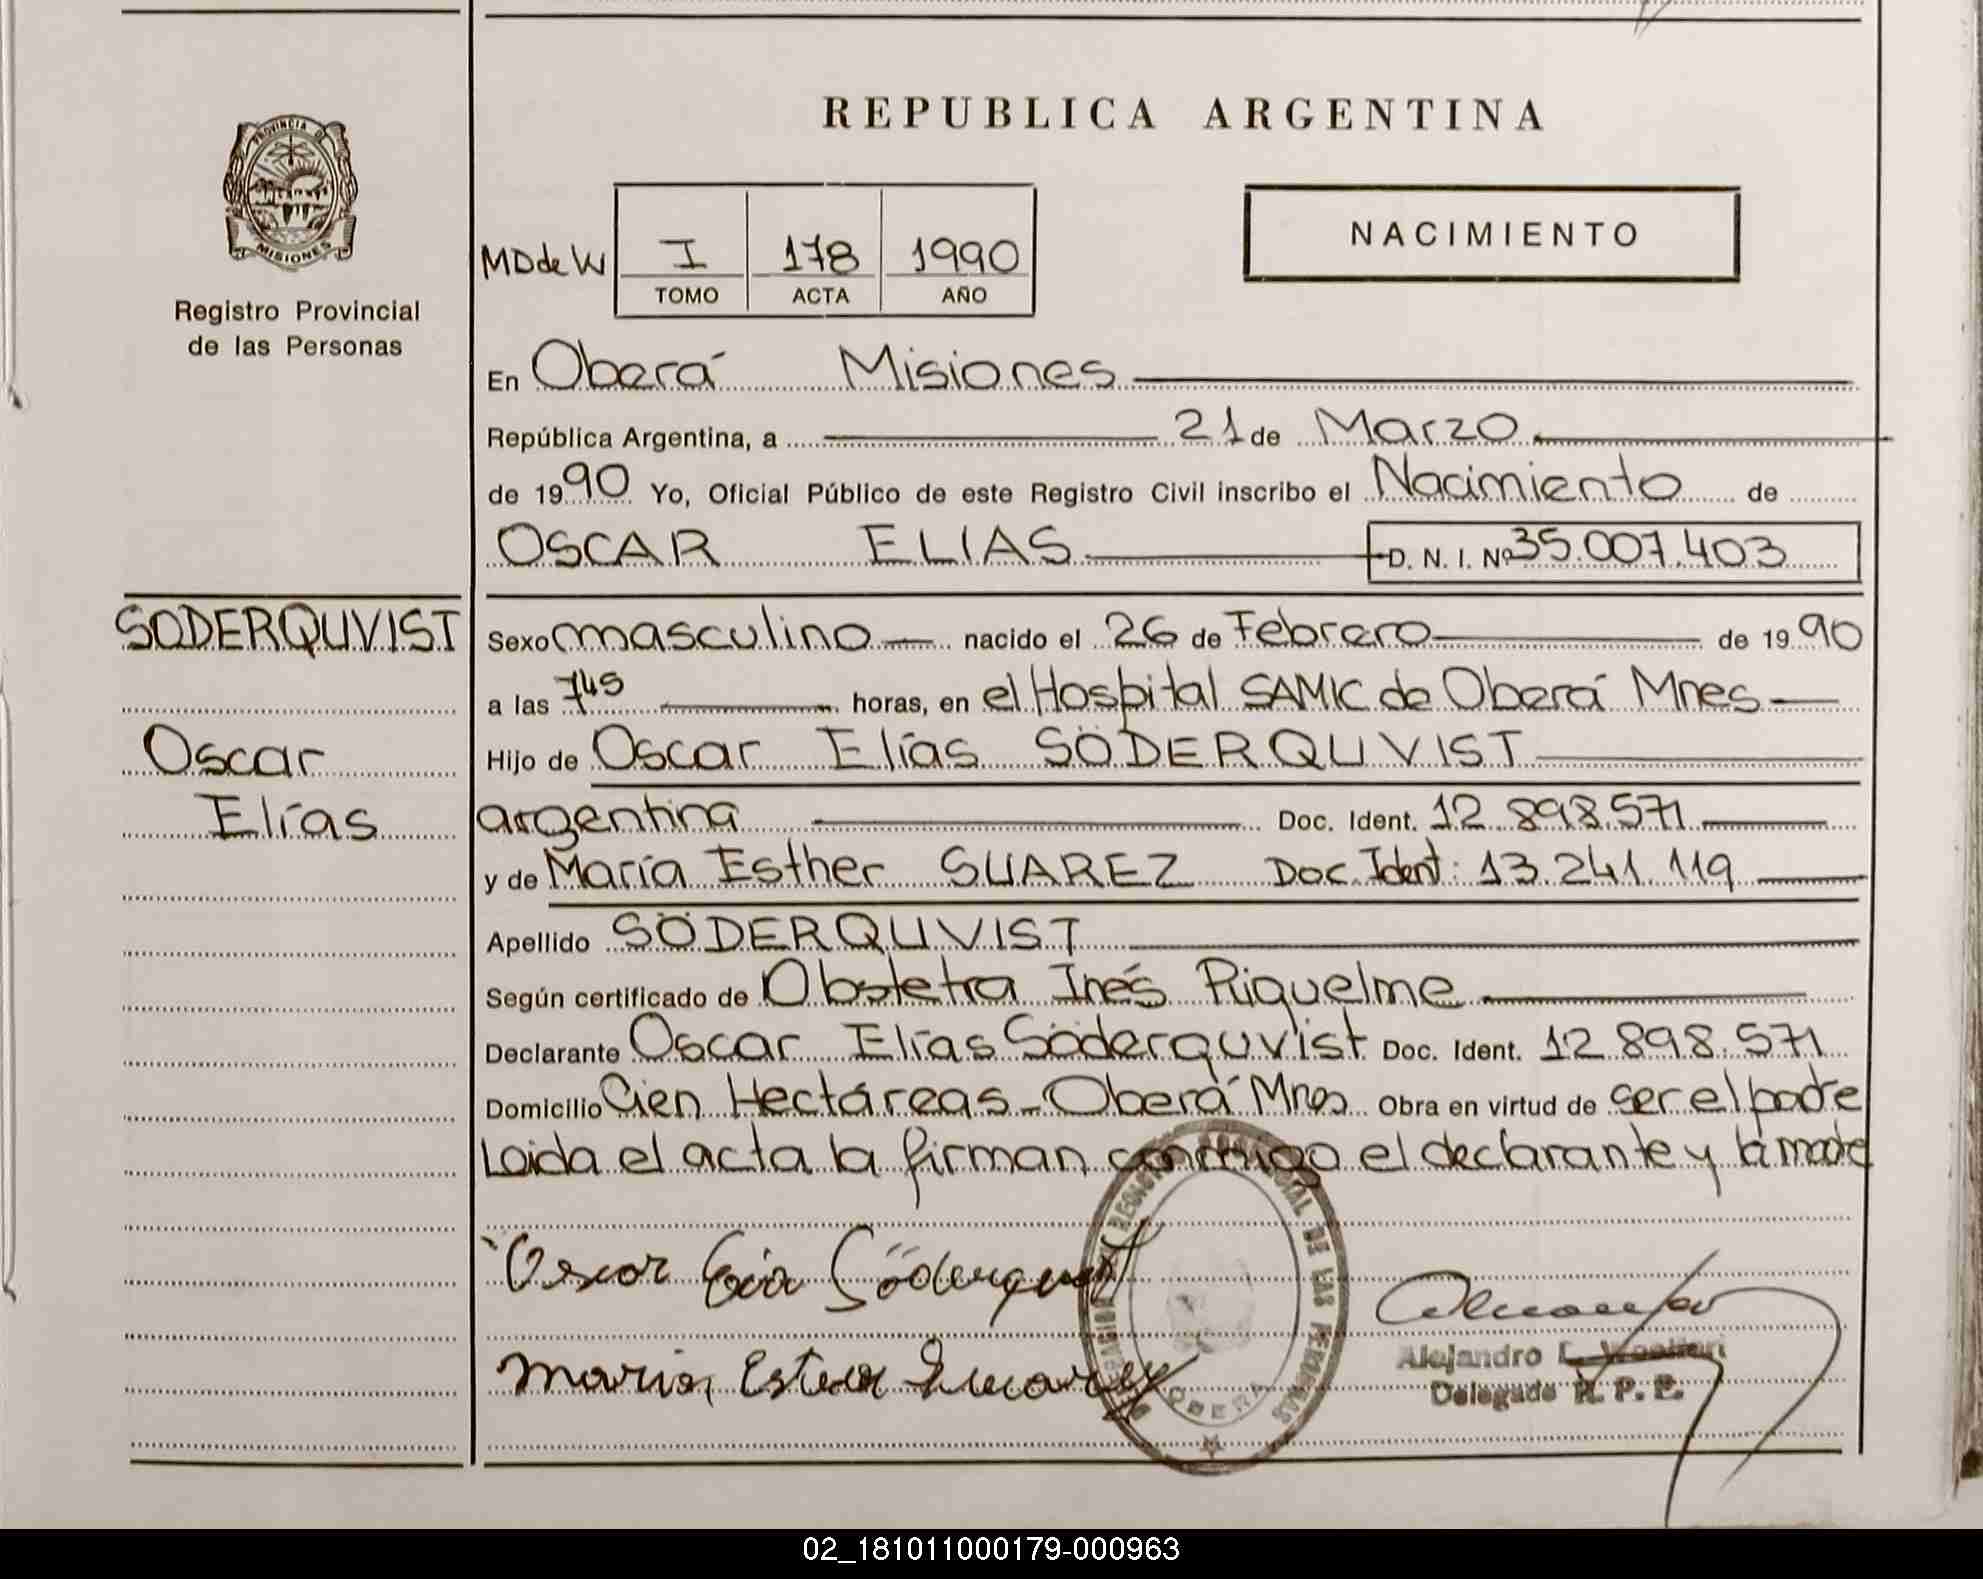 REPUBLICA ARGENTINA
PROVINCIA DE
MISIONES
Registro Provincial
de las Personas
NACIMIENTO
MDdeW I 178 1990
TOMO ACTA AÑO
En Oberá Misiones
República Argentina, a 21 de Marzo
de 1990 Yo, Oficial Público de este Registro Civil inscribo el Nacimiento de
OSCAR ELIAS D. N. I. Nº 35.007.403
SODERQUVIST
Oscar
Elías
Sexo masculino nacido el 26 de Febrero de 1990
a las 7,45 horas, en el Hospital SAMIC de Oberá Mnes
Hijo de Oscar Elías SÖDERQUVIST
argentina Doc. Ident. 12.898.571
y de María Esther SUAREZ Doc. Ident: 13.241.119
Apellido SÖDERQUVIST
Según certificado de Obstetra Inés Riquelme
Declarante Oscar Elías Söderquvist Doc. Ident. 12.898.571
Domicilio Cien Hectáreas - Oberá Mnes Obra en virtud de ser el padre
Leida el acta la firman conmigo el declarante y la madre
Oscar Elia Söderquvist
Maria Ester Suarez
REGISTRO PROVINCIAL DE LAS PERSONAS
OBERA
Alejandro
Delegado R. P. P.
02_181011000179-000963